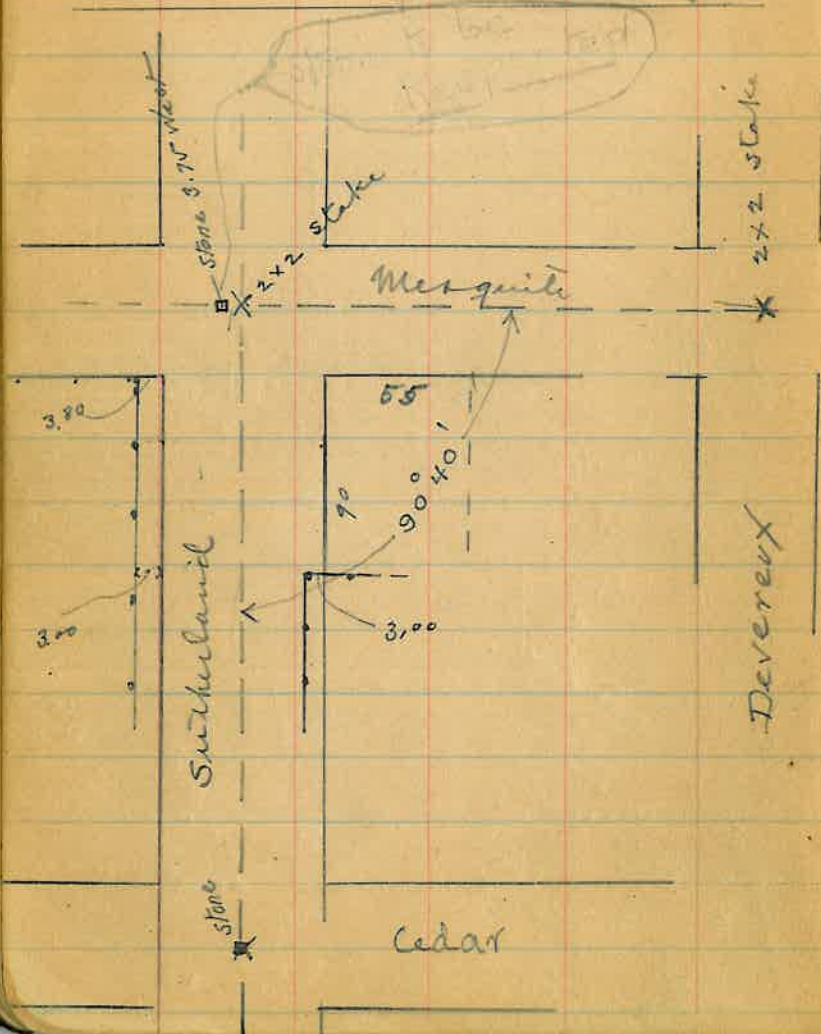 stone 3.75 West
2x2 stake
2x2 stake
Mesquite
3.80
55
90
90° 40'
3.00
Sutherland
Devereux
stone
Cedar